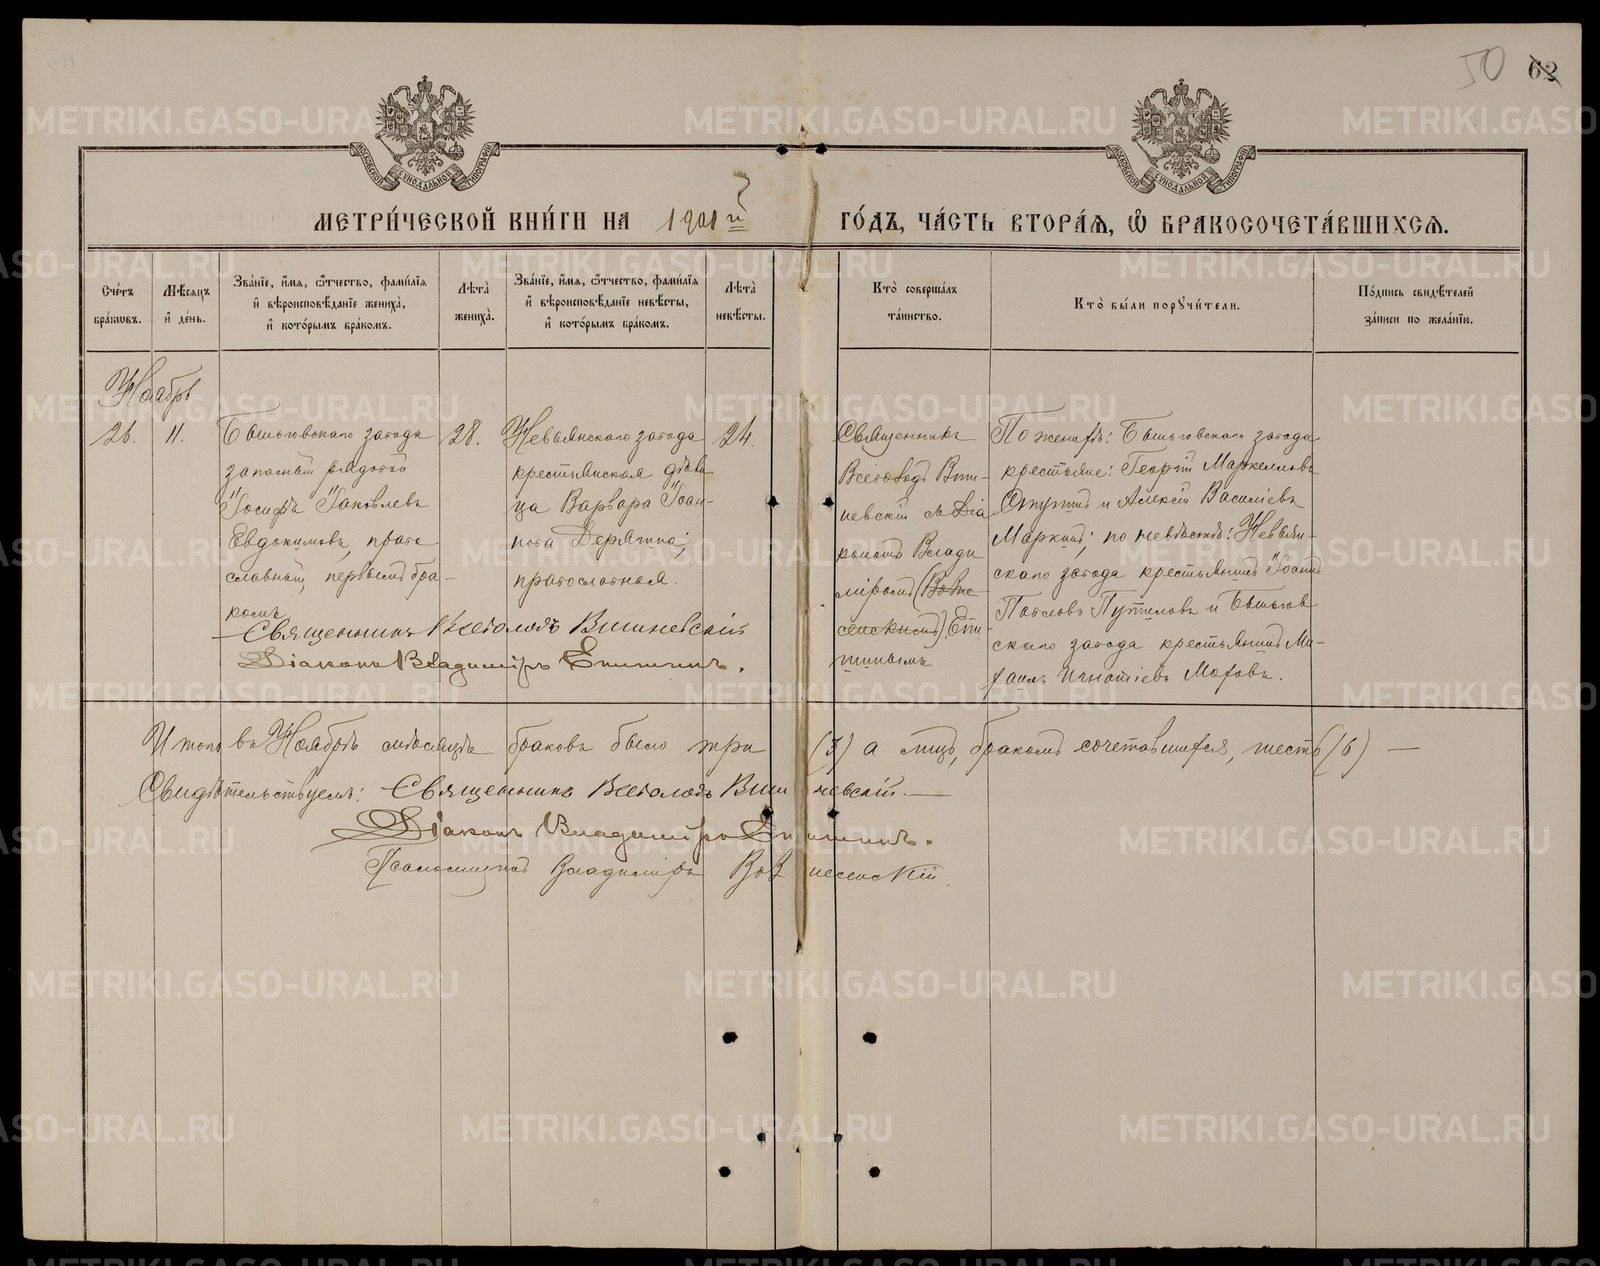 50 62
МОСКОВСКОЙ СѴНОДАЛЬНОЙ ТИПОГРАФІИ
МОСКОВСКОЙ СѴНОДАЛЬНОЙ ТИПОГРАФІИ
МЕТРИ́ЧЕСКОЙ КНИ́ГИ НА 1901й ГО́ДЪ, ЧА́СТЬ ВТОРА́Ѧ, Ѡ҆ БРАКОСОЧЕТА́ВШИХСѦ.
Сче́тъ
бра́кѡвъ.
Мѣ́сѧцъ
и҆ де́нь.
Зва́нїе, и҆́мѧ, ѻ҆́тчество, фами́лїѧ
и҆ вѣроисповѣ́данїе жениха̀,
и҆ кото́рымъ бра́комъ.
Лѣта̀
жениха̀.
Зва́нїе, и҆́мѧ, ѻ҆́тчество, фами́лїѧ
и҆ вѣроисповѣ́данїе невѣ́сты,
и҆ кото́рымъ бра́комъ.
Лѣта̀
невѣ́сты.
Кто̀ соверша́лъ
та́инство.
Кто̀ бы́ли порꙋчи́тели.
По́дпись свидѣ́телей
за́писи по жела́нїю.
Ноябрь
26.
11.
Быньговскаго завода
запасный рядовой
Іосифъ Іаковлевъ
Евдокимовъ, право
славный, первымъ бра-
комъ
28.
Невьянскаго завода
крестьянская дѣви
ца Варвара Іоан-
нова Дерягина;
православная.
24.
Священникъ
Всеволодъ Виш-
невскій съ Діа
кономъ Влади
міромъ (Возне
сенскимъ) Епи-
шинымъ.
По женихѣ: Быньговскаго завода
крестьяне: Георгій Маркелловъ
и Алексій Василіевъ
Маркинъ; по невѣстѣ: Невьян-
скаго завода крестьянинъ Іоаннъ
Павловъ Путиловъ и Быньгов
скаго завода крестьянинъ Ми-
хаилъ Игнатіевъ Моховъ.
Священникъ Всеволодъ Вишневскій
Діаконъ Владиміръ Епишинъ.
Итого въ Ноябрѣ мѣсяцѣ браковъ было три (3) а лицъ, бракомъ сочетавшихся, шесть (6) —
Свидѣтельствуемъ: Священникъ Всеволодъ Вишневскій. —
Діаконъ Владиміръ Епишинъ.
Псаломщикъ Владиміръ Вознесенскій.
METRIKI.GASO-URAL.RU